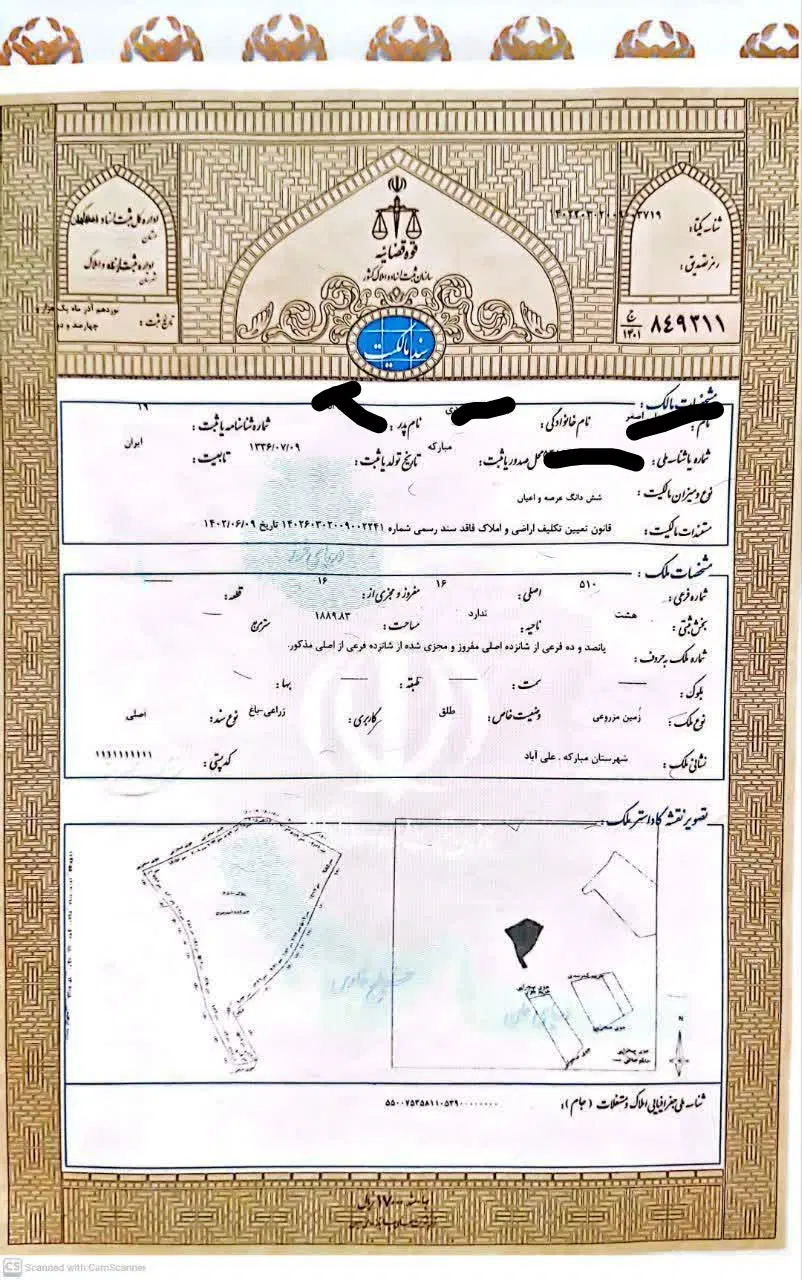 قوه قضائیه
سازمان ثبت اسناد و املاک کشور
سند مالکیت
شناسه یکتا:
رمز تصدیق:
۸۴۹۳۱۱ ج ۱۴۰۱
اداره کل ثبت اسناد و املاک
استان
اداره ثبت اسناد و املاک
شهرستان
تاریخ ثبت : نوزدهم آذر ماه یک هزار و
چهارصد و دو
مشخصات مالک :
نام : اصغر نام خانوادگی : نام پدر : شماره شناسنامه یا ثبت : ۱۹
شماره یا شناسه ملی : محل صدور یا ثبت : مبارکه تاریخ تولد یا ثبت : ۱۳۳۶/۰۷/۰۹ تابعیت : ایران
نوع و میزان مالکیت : شش دانگ عرصه و اعیان
مستندات مالکیت : قانون تعیین تکلیف اراضی و املاک فاقد سند رسمی شماره ۱۴۰۲۶۰۳۰۲۰۰۹۰۰۲۲۴۱ تاریخ ۱۴۰۲/۰۶/۰۹
مشخصات ملک :
شماره فرعی : ۵۱۰ اصلی : ۱۶ مفروز و مجزی از : ۱۶ قطعه :
بخش ثبتی : هشت ناحیه : ندارد مساحت : ۱۸۸۹.۸۳ مترمربع
شماره ملک به حروف : پانصد و ده فرعی از شانزده اصلی مفروز و مجزی شده از شانزده فرعی از اصلی مذکور.
بلوک : سمت : طبقه : بها :
نوع ملک : زمین مزروعی وضعیت خاص : طلق کاربری : زراعی-باغ نوع سند : اصلی
نشانی ملک : شهرستان مبارکه . علی آباد کدپستی : ۱۱۱۱۱۱۱۱۱۱
تصویر نقشه کاداستر ملک :
N
شناسه ملی جغرافیایی املاک و مستغلات (جام) : ۵۵۰۰۷۵۳۵۸۱۱۰۵۳۹۰۰۰۰۰۰۰۰
CS Scanned with CamScanner